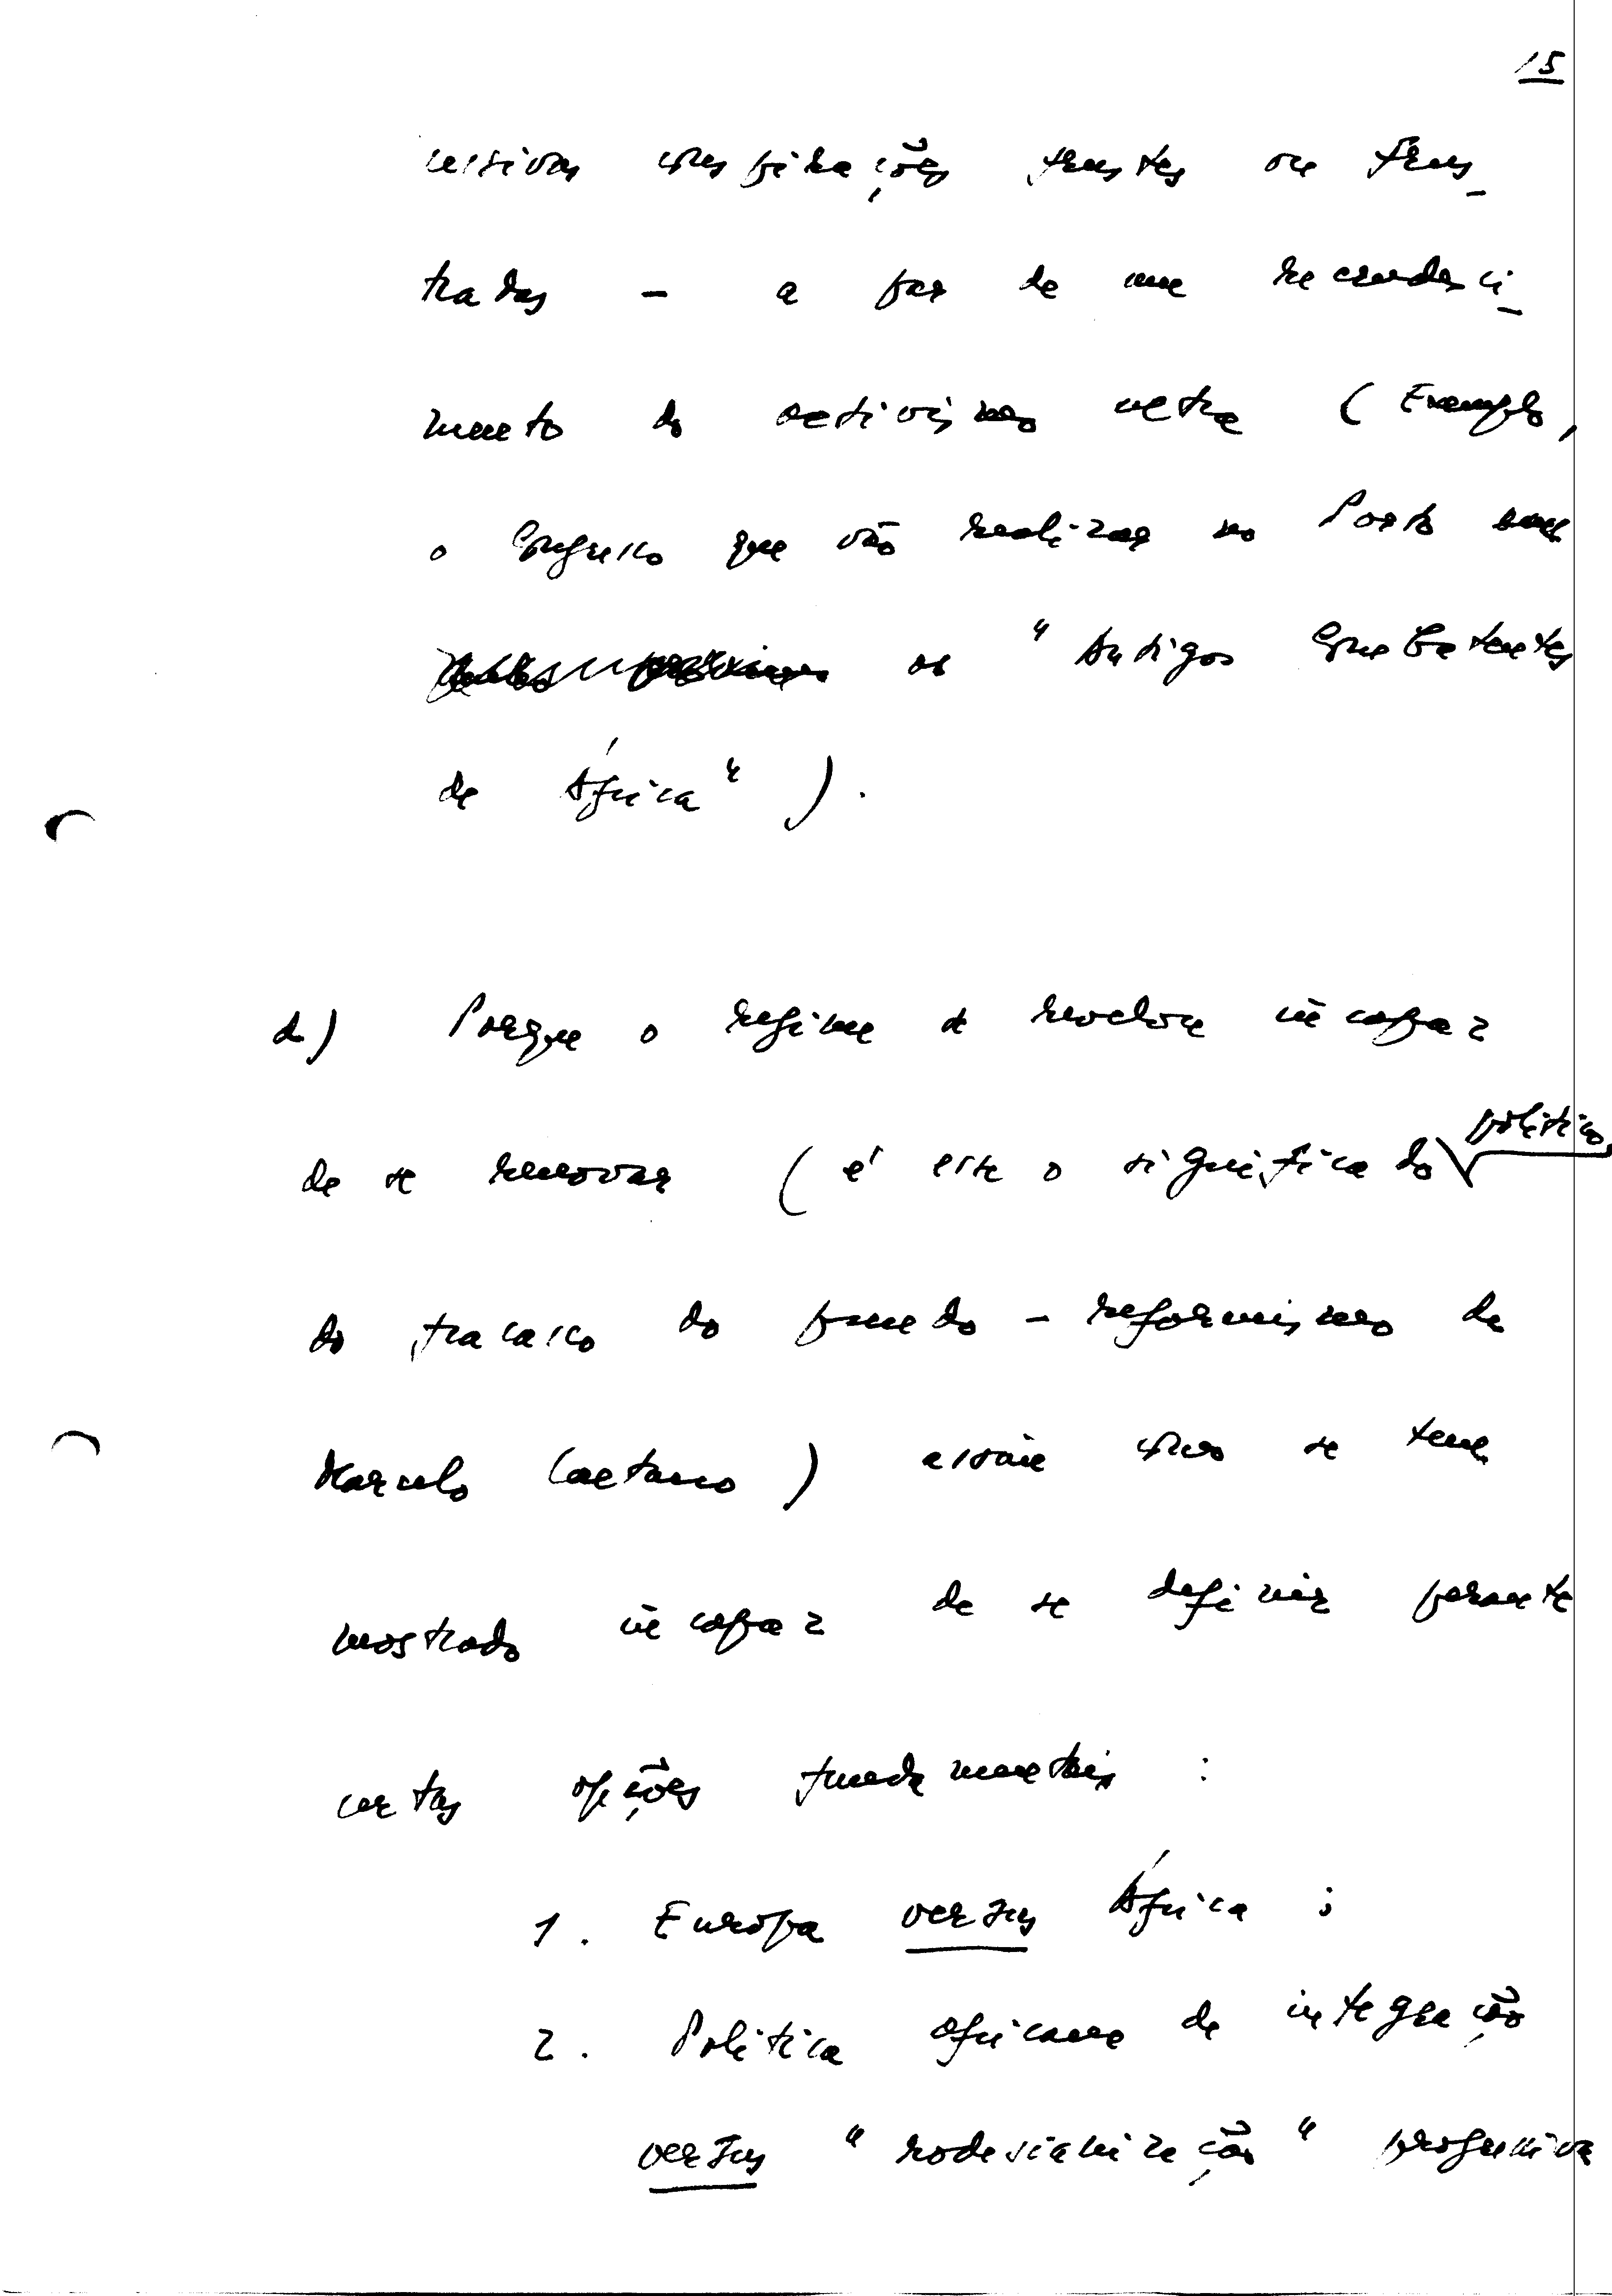 15
cessivas conspirações frustes ou frus-
tradas - a par de um recrudesci-
mento do activismo ultra (Exemplo,
o Congresso que vão realizar no Porto
os "Antigos Combatentes
de África").
d) Porque o regime se revelou incapaz
político,
de se renovar (é esse o significado
do fracasso do pseudo-reformismo de
Marcelo Caetano) assim como se tem
mostrado incapaz de se definir perante
certas opções fundamentais:
1. Europa versus África;
2. Política africana de integração
versus "rodesianização" progressiva